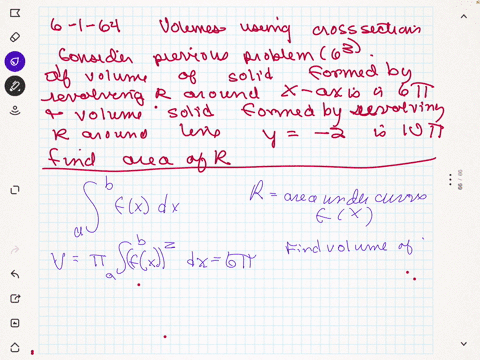 6-1-64 Volumes using cross sections
Consider previous problem (63).
If volume of solid formed by
revolving R around x-axis is 6π
& volume solid formed by revolving
R around line y = -2 is 10π
find area of R
∫_a^b f(x) dx R = area under curves
f(x)
V = π ∫_a^b (f(x))^2 dx = 6π Find volume of